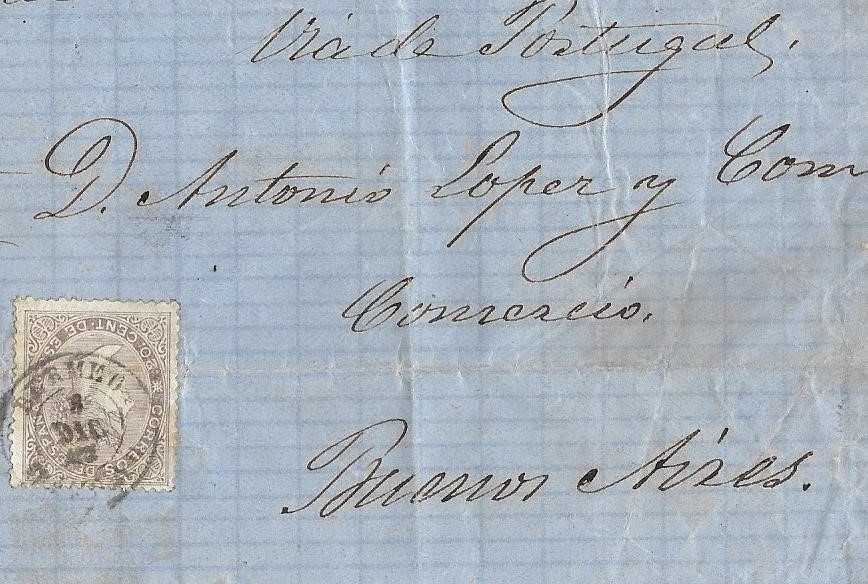 Via de Portugal.
D. Antonio Lopez y Com
Comercio.
Buenos Aires.
CORREOS DE ESPAÑA
CENT. DE ES
8
DIC